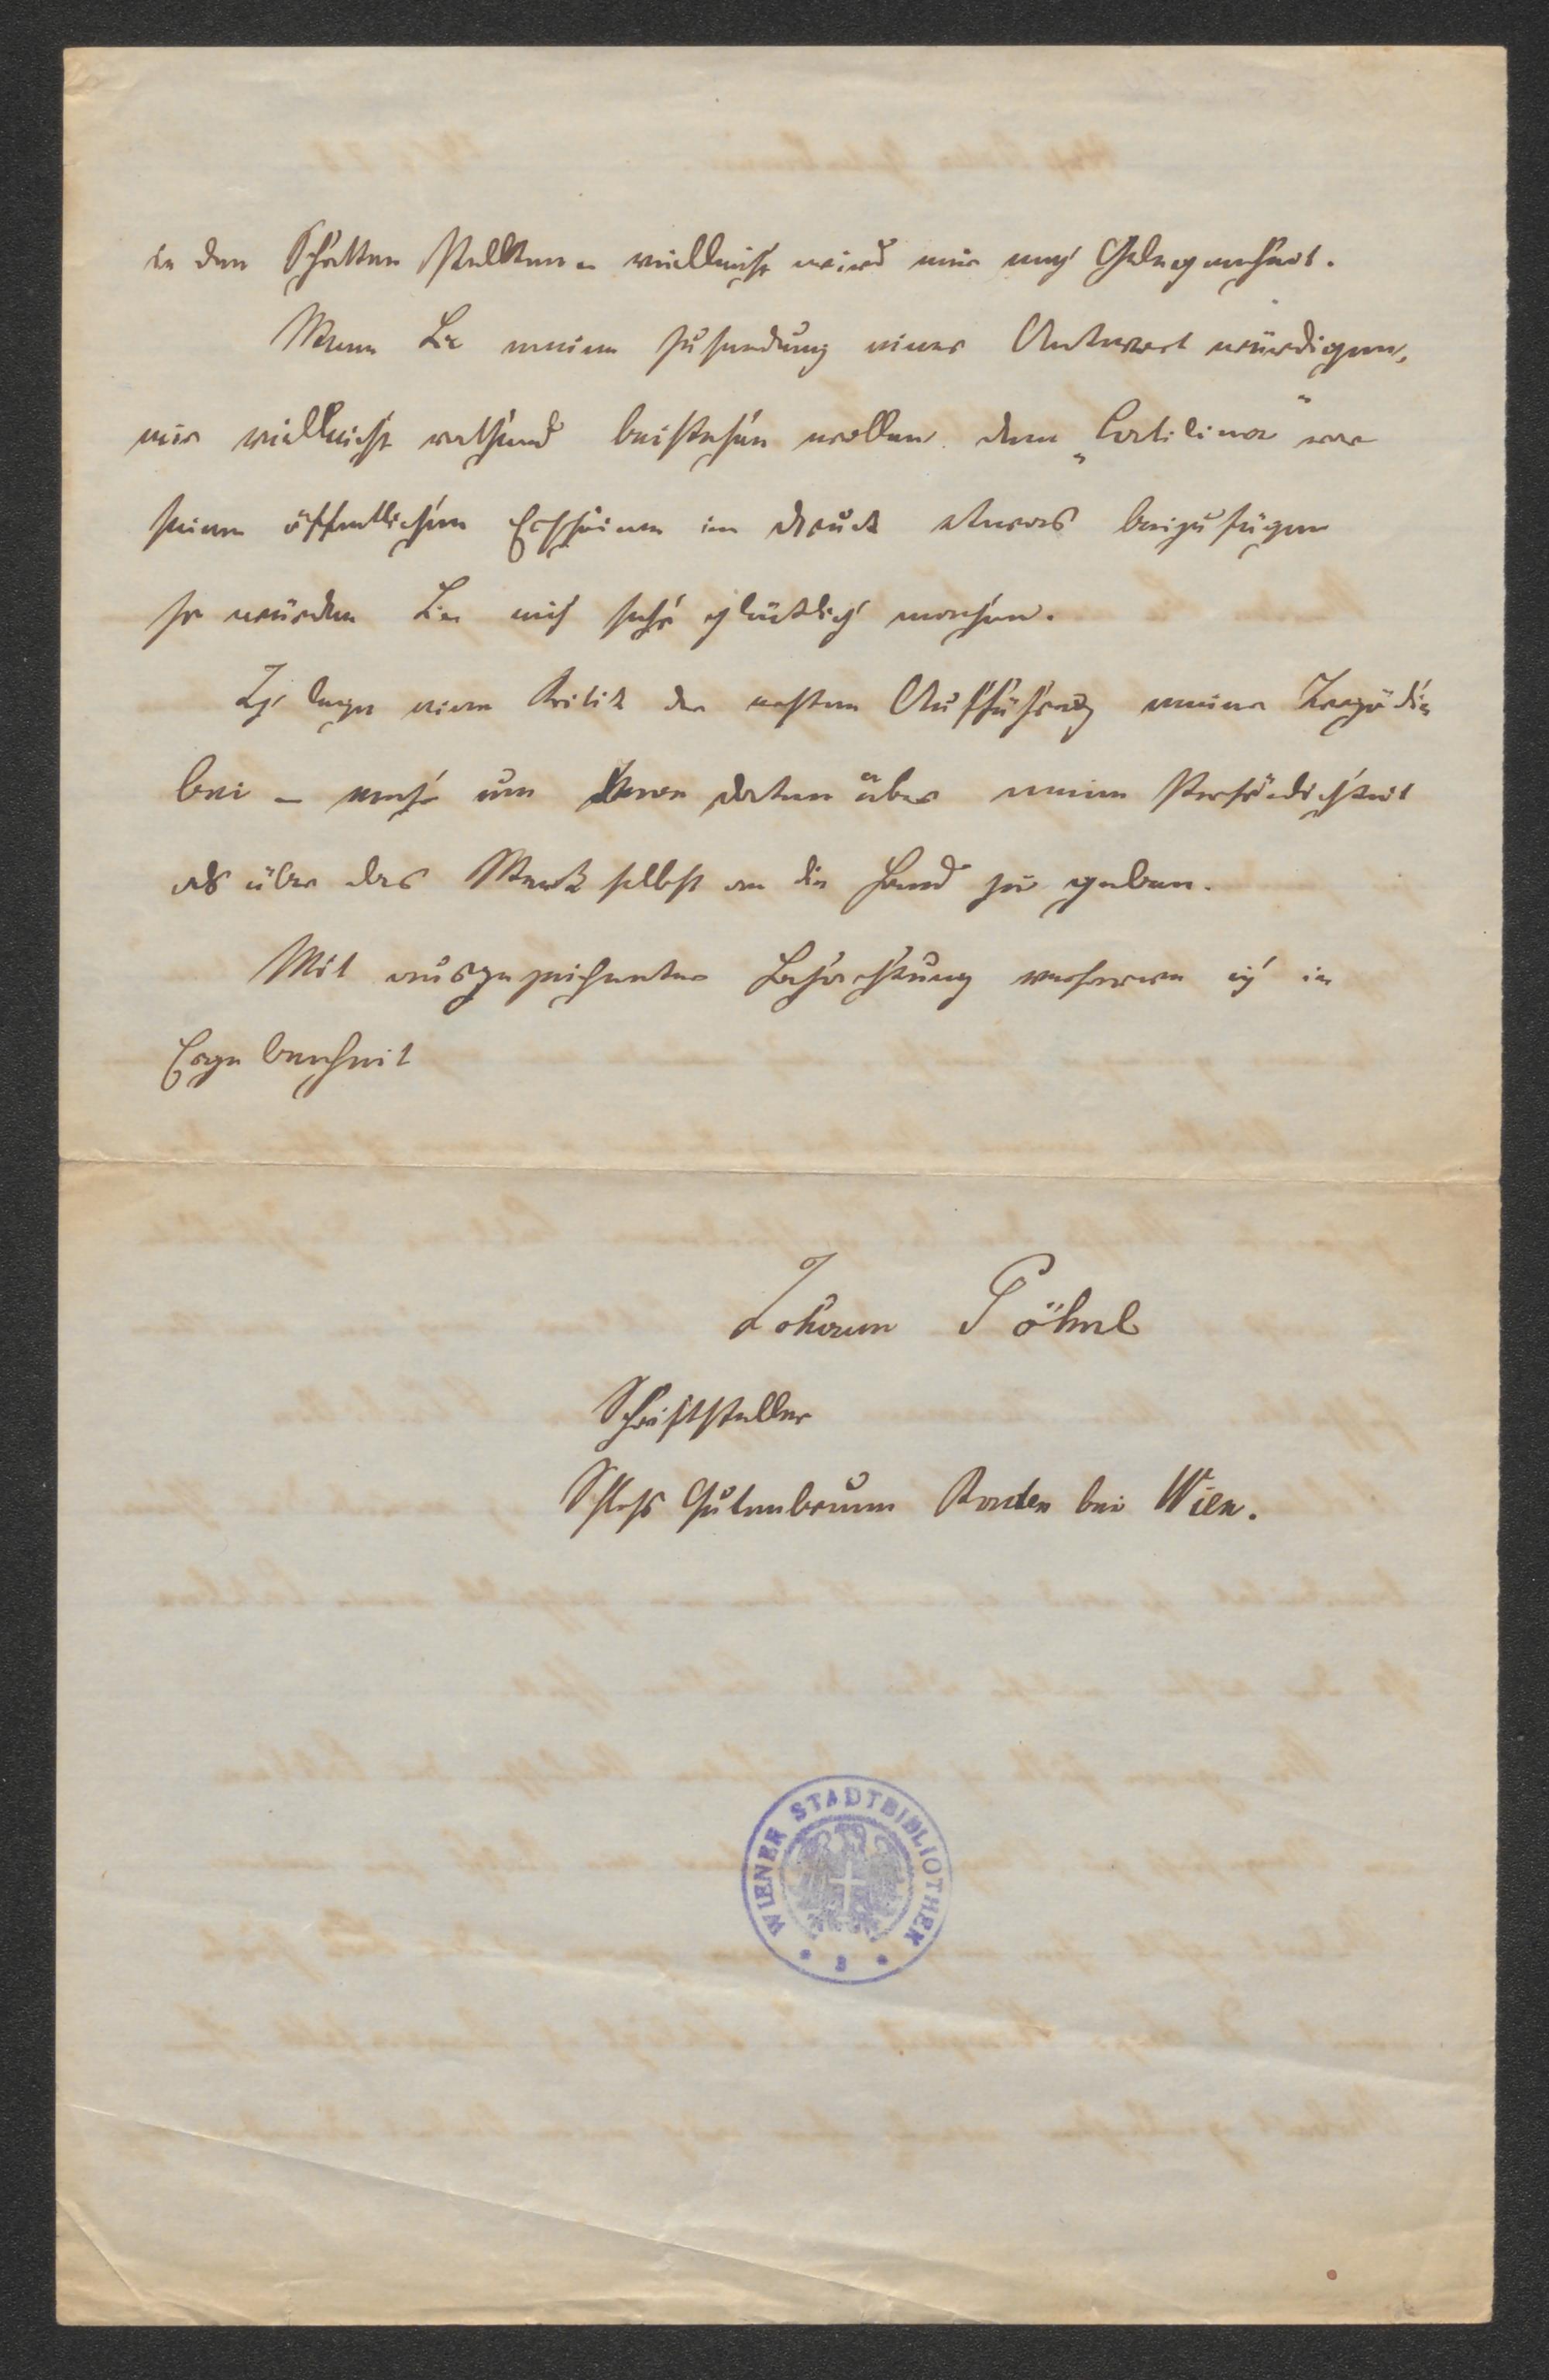 in den Schatten stellten – vielleicht wird mir noch Gelegenheit.
Wenn Sie meine Zusendung einer Antwort würdigen,
mir vielleicht rathend beistehen wollen dem „Catilina" vor
seinem öffentlichen Erscheinen im Druck etwas beizufügen
so würden Sie mich sehr glücklich machen.
Ich lege eine Kritik der ersten Aufführung meiner Tragödie
bei – mehr um Ihnen Daten über meine Persönlichkeit
als über das Werk selbst an die Hand zu geben.
Mit ausgezeichneter Hochachtung verharre ich in
Ergebenheit
Johann Pöhnl
Schriftsteller
Schloss Gutenbrunn Baden bei Wien.
WIENER STADTBIBLIOTHEK